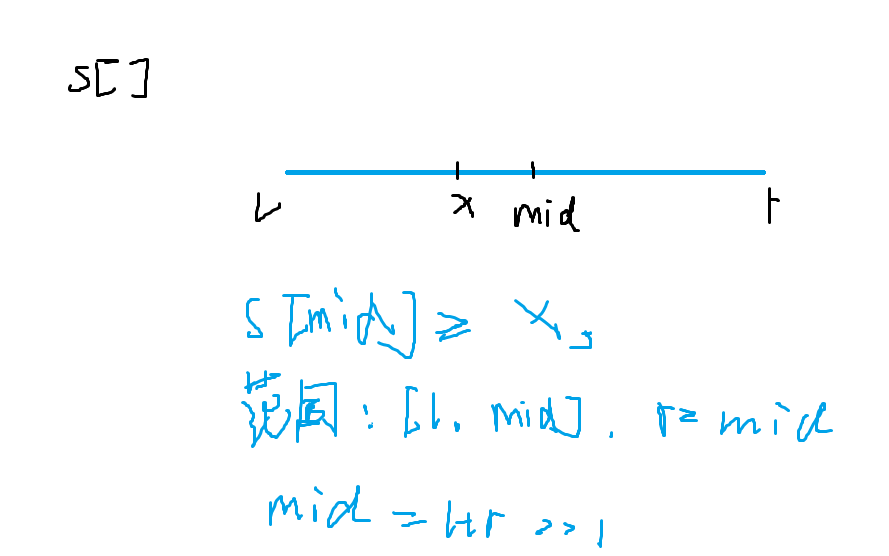 S[]
l x mid r
S[mid] ≥ x,
范围：[l, mid]. r = mid
mid = l+r >> 1